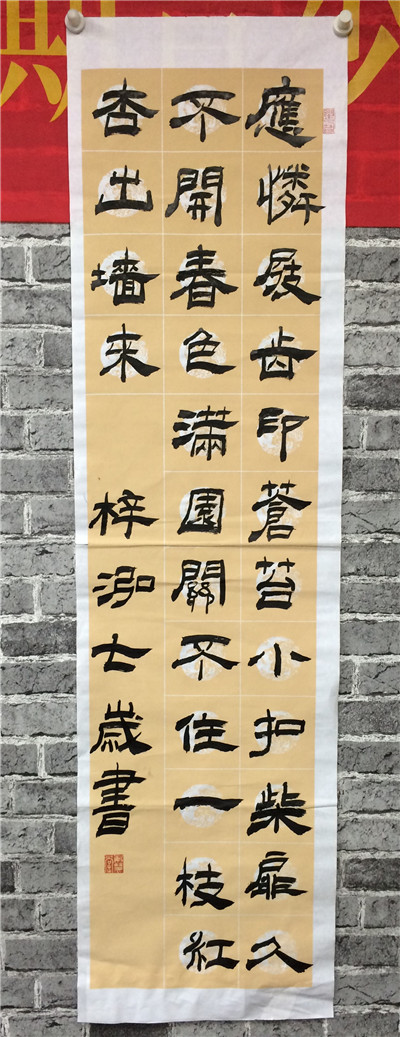 應憐屐齒印蒼苔小扣柴扉久
不開春色滿園關不住一枝紅
杏出墻来
梓泖七歲書